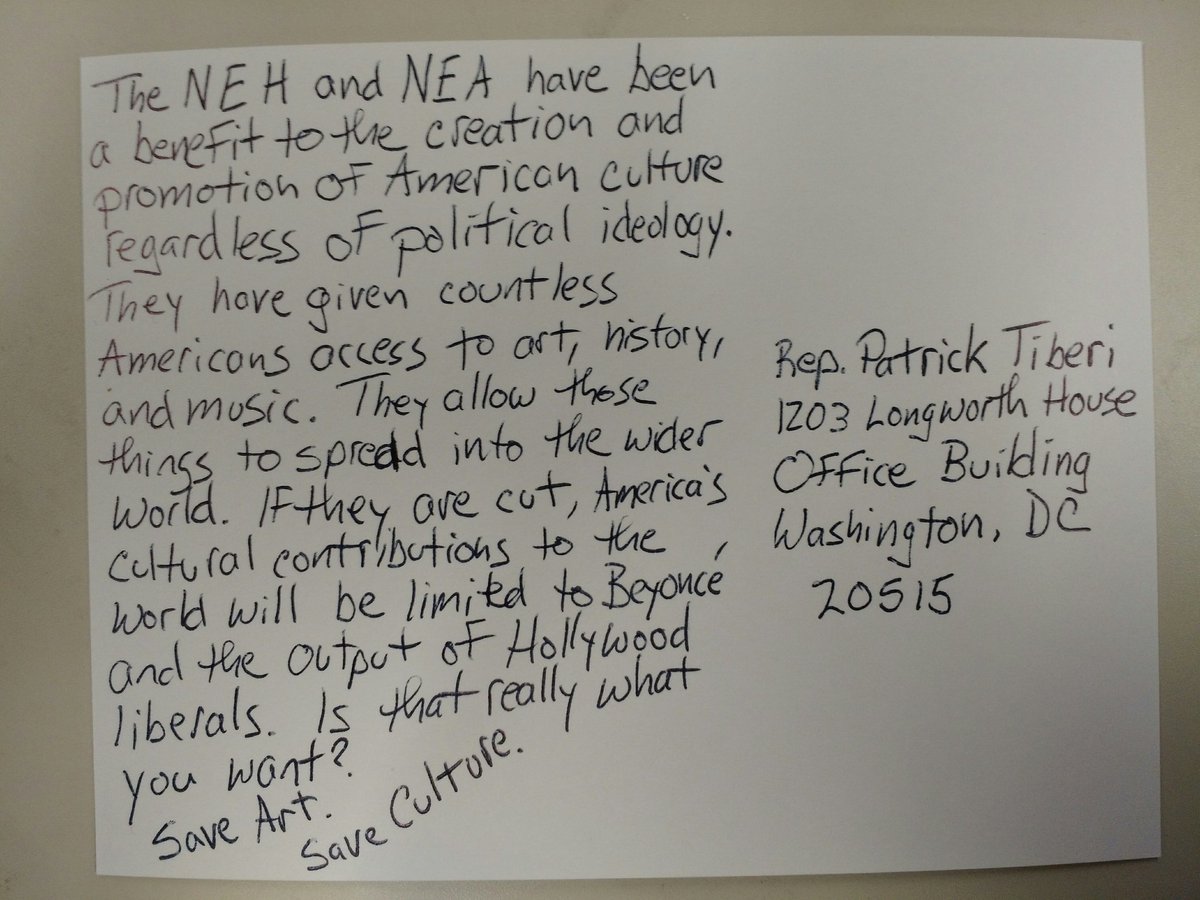 The NEH and NEA have been
a benefit to the creation and
promotion of American culture
regardless of political ideology.
They have given countless
Americans access to art, history,
and music. They allow those
things to spread into the wider
world. If they are cut, America's
cultural contributions to the
world will be limited to Beyoncé
and the output of Hollywood
liberals. Is that really what
you want?
Save Art.
Save Culture.
Rep. Patrick Tiberi
1203 Longworth House
Office Building
Washington, DC
20515